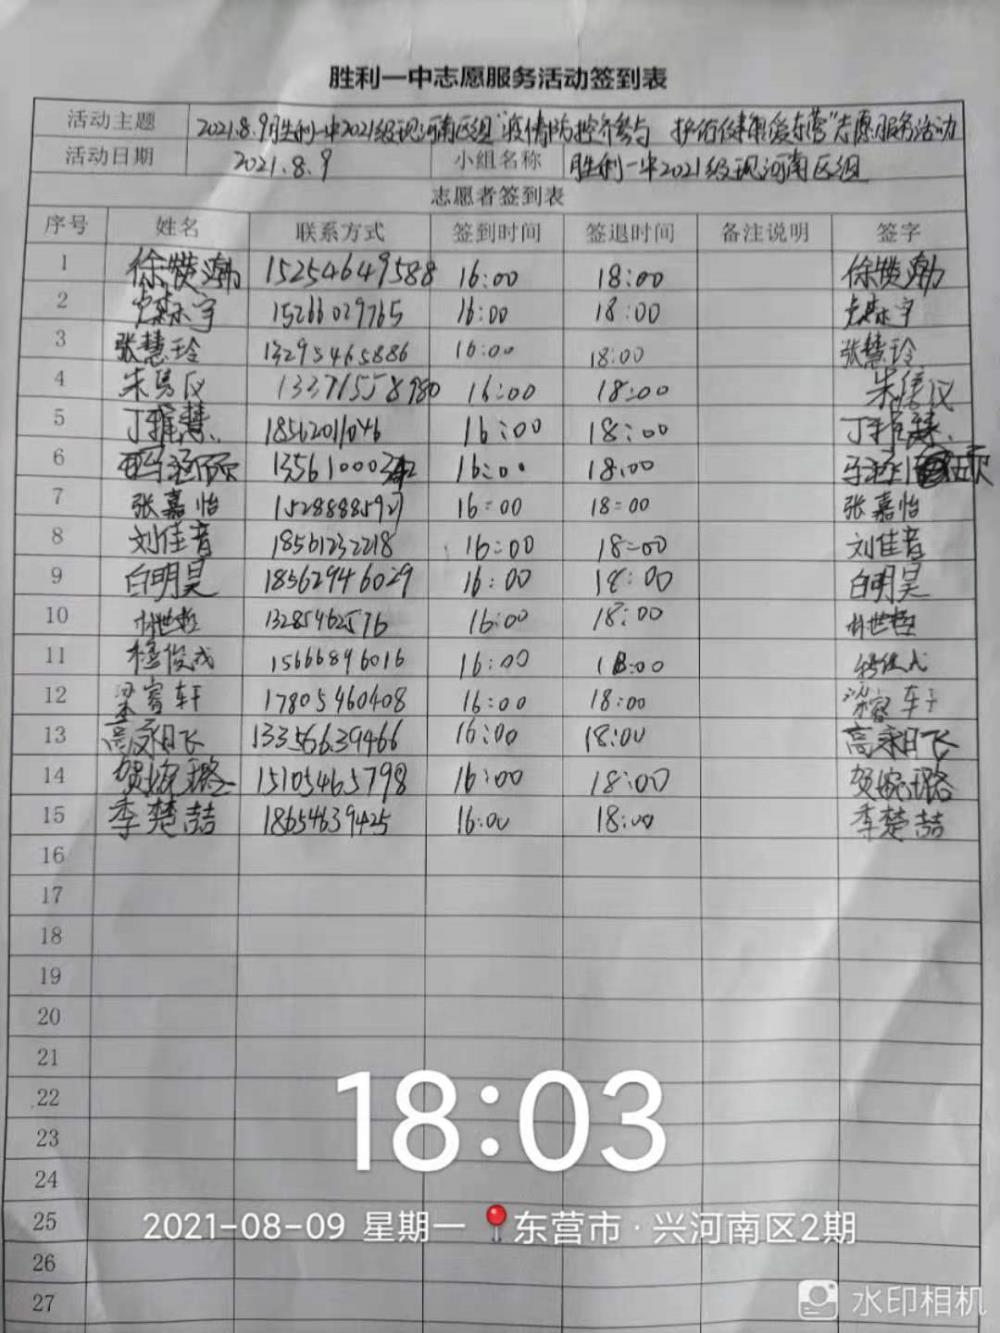 胜利一中志愿服务活动签到表
活动主题 2021.8.9胜利一中2021级现河南区组"疫情防控齐参与 护佑健康爱东营"志愿服务活动
活动日期 2021.8.9 小组名称 胜利一中2021级现河南区组
志愿者签到表
序号 姓名 联系方式 签到时间 签退时间 备注说明 签字
1 徐赞瀚 15254649588 16:00 18:00 徐赞瀚
2 宇 15266029765 16:00 18:00 宇
3 张慧玲 13295465886 16:00 18:00 张慧玲
4 宋 仪 13371558980 16:00 18:00 宋 仪
5 丁雅慧 18562011046 16:00 18:00 丁雅慧
6 16:00 18:00
7 张嘉怡 15288885927 16:00 18:00 张嘉怡
8 刘佳音 18561232218 16:00 18:00 刘佳音
9 白明昊 18562946029 16:00 18:00 白明昊
10 世哲 13285462576 16:00 18:00 世哲
11 俊成 15666896016 16:00 18:00
12 梁睿轩 17805460408 16:00 18:00 梁睿轩
13 高 飞 13356639466 16:00 18:00 高 飞
14 贺婉璐 15105465798 16:00 18:00 贺婉璐
15 季楚喆 18654639425 16:00 18:00 季楚喆
16
17
18
19
20
21
22
23
24
25
26
27
18:03
2021-08-09 星期一 东营市·兴河南区2期
水印相机